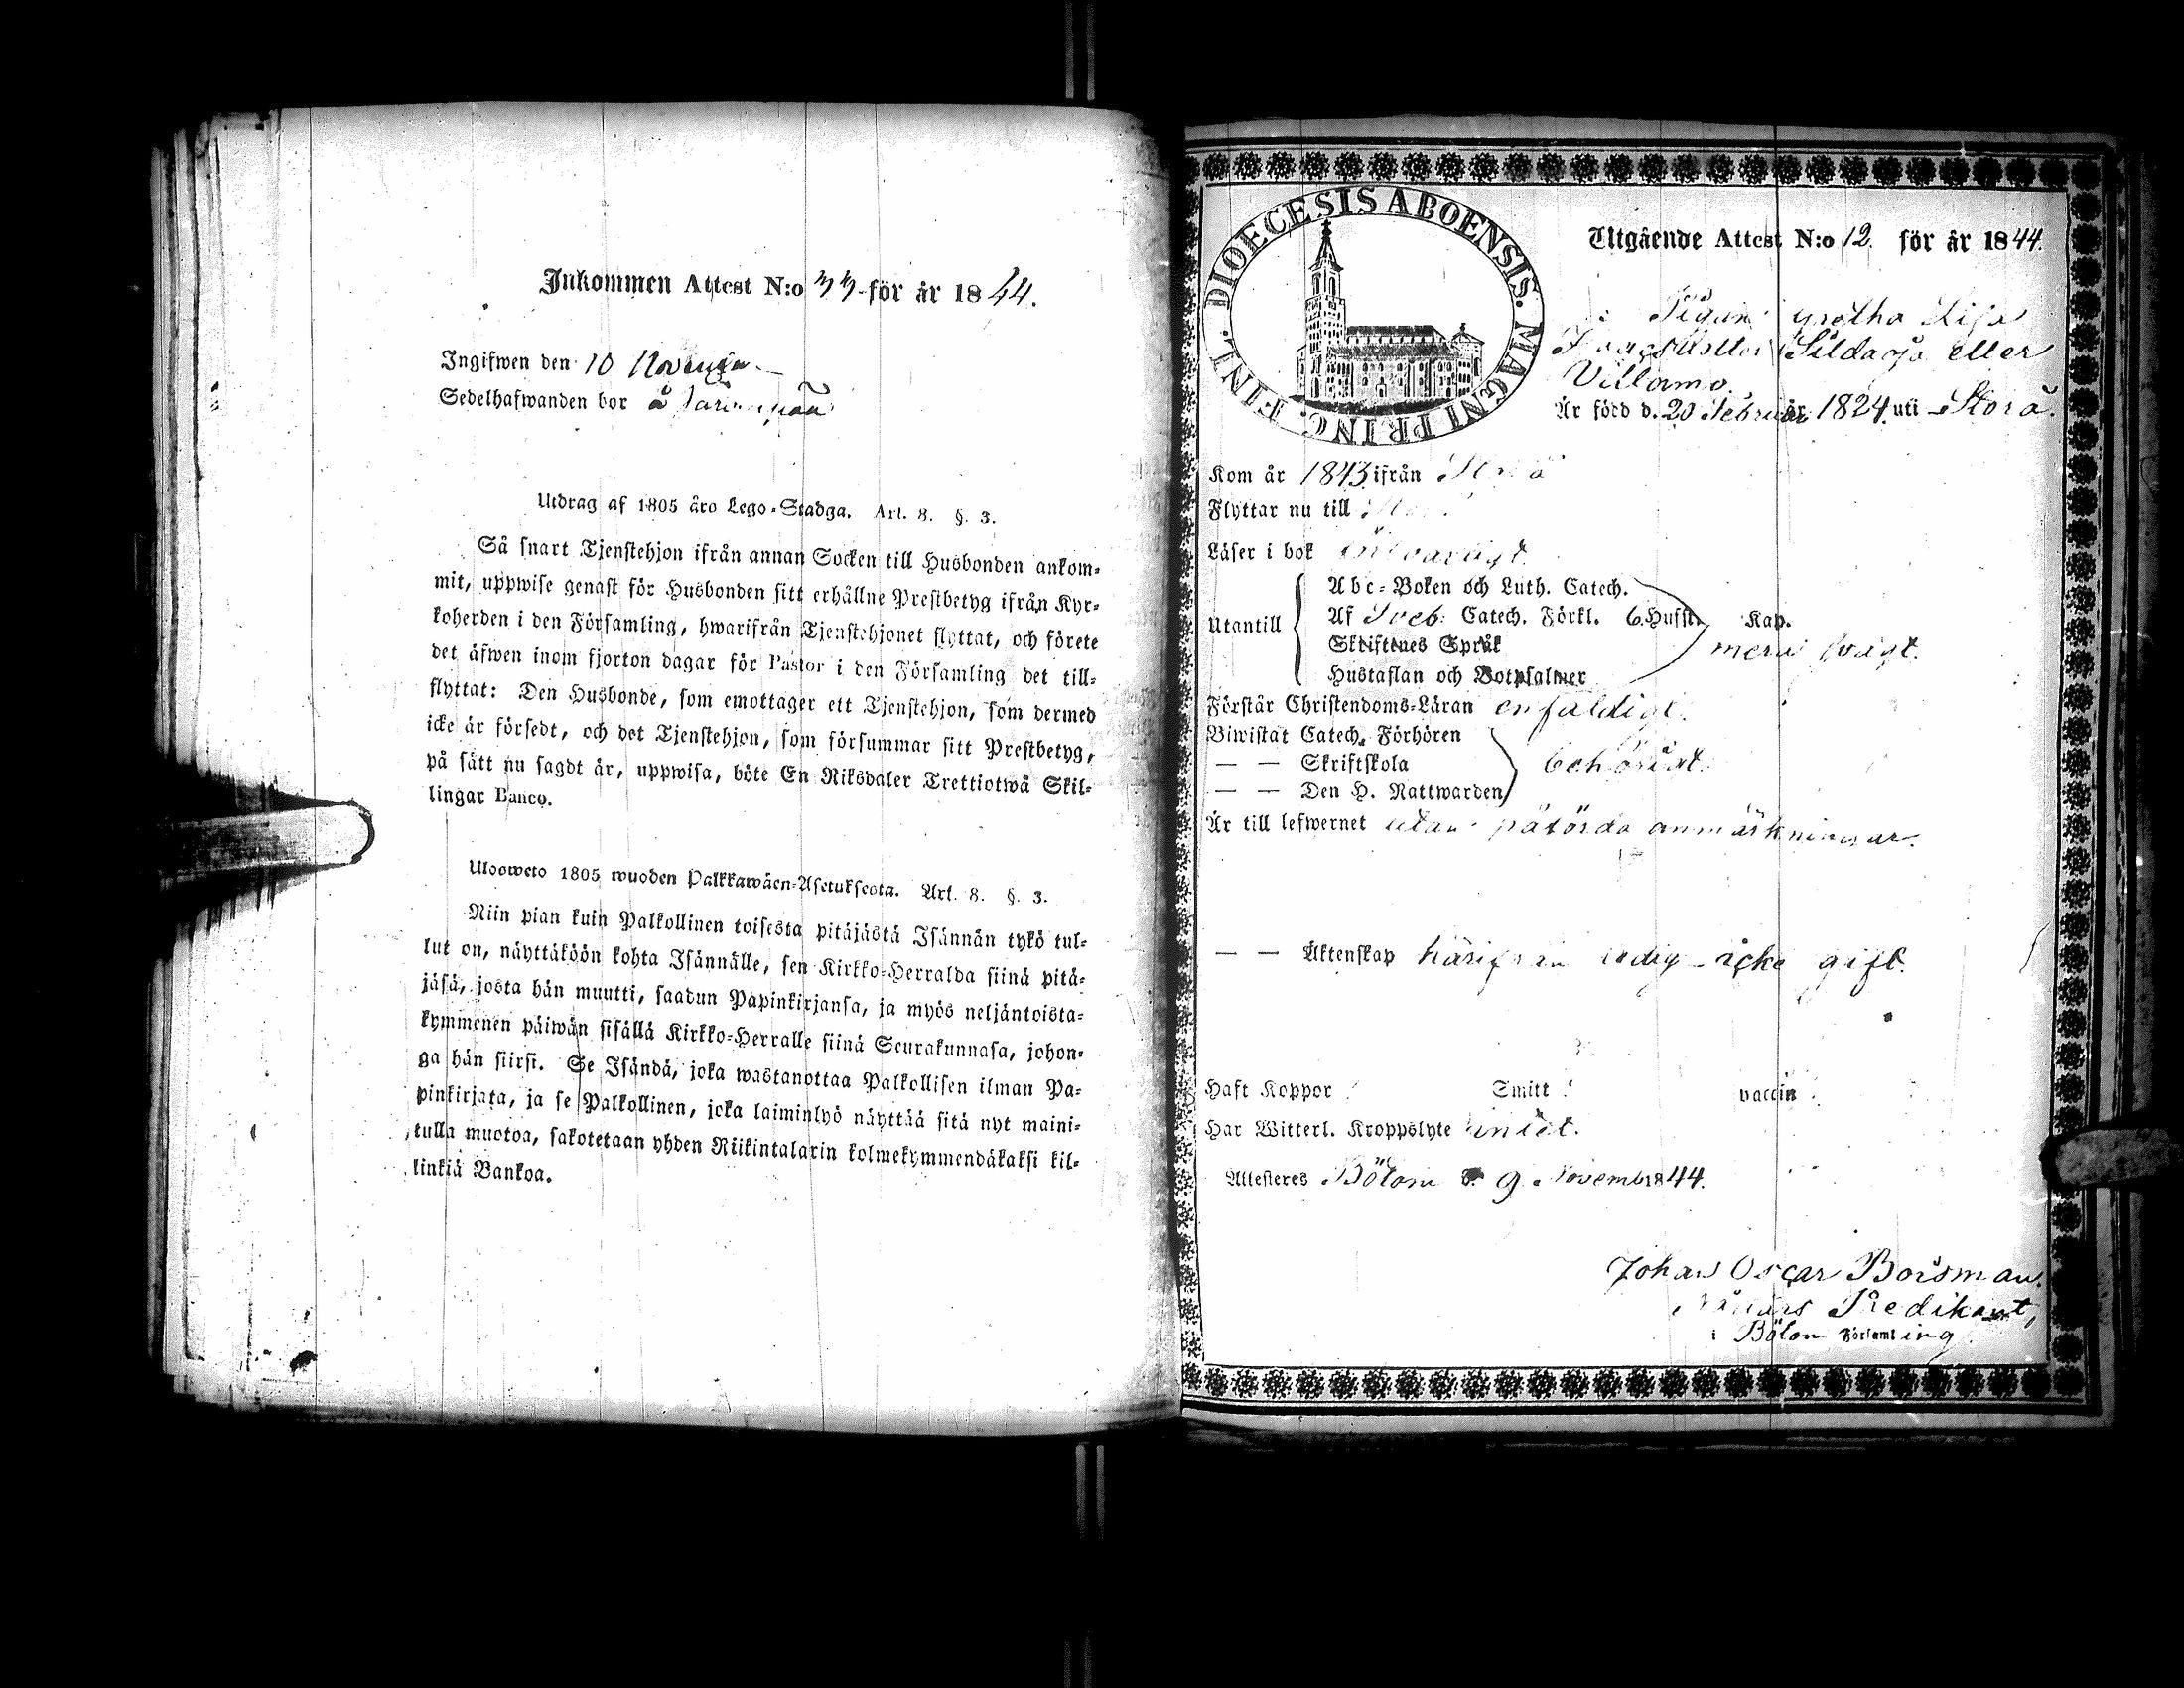 Inkommen Attest N:o 33 för år 1844.
Ingifwen den 10 November
Sedelhafwanden bor å
Utdrag af 1805 års Lego-Stadga. Art. 8. §. 3.
Så snart Tjenstehjon ifrån annan Socken till Husbonden ankom-
mit, uppwise genast för Husbonden sitt erhållne Prestbetyg ifrån Kyr-
koherden i den Församling, hwarifrån Tjenstehjonet flyttat, och förete
det äfwen inom fjorton dagar för Pastor i den Församling det till-
flyttat: Den Husbonde, som emottager ett Tjenstehjon, som dermed
icke är försedt, och det Tjenstehjon, som försummar sitt Prestbetyg,
på sätt nu sagdt är, uppwisa, böte En Riksdaler Trettiotwå Skil-
lingar Banco.
Ulosweto 1805 wuoden Palkkawäen-Asetuksesta. Art. 8. §. 3.
Niin pian kuin Palkollinen toisesta pitäjästä Isännän tykö tul-
lut on, näyttäköön kohta Isännälle, sen Kirkko-Herralda siinä pitä-
jäsä, josta hän muutti, saadun Papinkirjansa, ja myös neljäntoista-
kymmenen päiwän sisällä Kirkko-Herralle siinä Seurakunnasa, johon-
ga hän siirsi. Se Isändä, joka wastanottaa Palkollisen ilman Pa-
pinkirjata, ja se Palkollinen, joka laiminlyö näyttää sitä nyt maini-
tulla muotoa, sakotetaan yhden Riikintalarin kolmekymmendäkaksi kil-
linkiä Bankoa.
DIOECESIS ABOENSIS. MAGNI PRINC. FINL.
Utgående Attest N:o 12. för år 1844.
Pigan Gretha Lisa
Isaacsdotter Sildarfä eller
Villamo.
Är född d. 20 Februari år 1824 uti Storå.
Kom år 1843 ifrån Storå
Flyttar nu till
Läser i bok försvarligt.
Utantill
Abc-Boken och Luth. Catech.
Af Sveb: Catech. Förkl. 6. Hufst. Kap.
Skriftenes Språk
Hustaflan och Botpsalmer
mera svagt.
Förstår Christendoms-Läran enfaldigt.
Biwistat Catech. Förhören
— — Skriftskola
— — Den H. Nattwarden
behörigt.
Är till lefwernet utan påförda anmärkningar.
— — Äktenskap härifrån ledig - icke gift.
Haft Koppor Smitt vaccin
Har Witterl. Kroppslyte intet.
Attesteres Bötom d. 9 November 1844.
Johan Oscar Borsman.
Nådårs Predikant,
i Bötom Församling